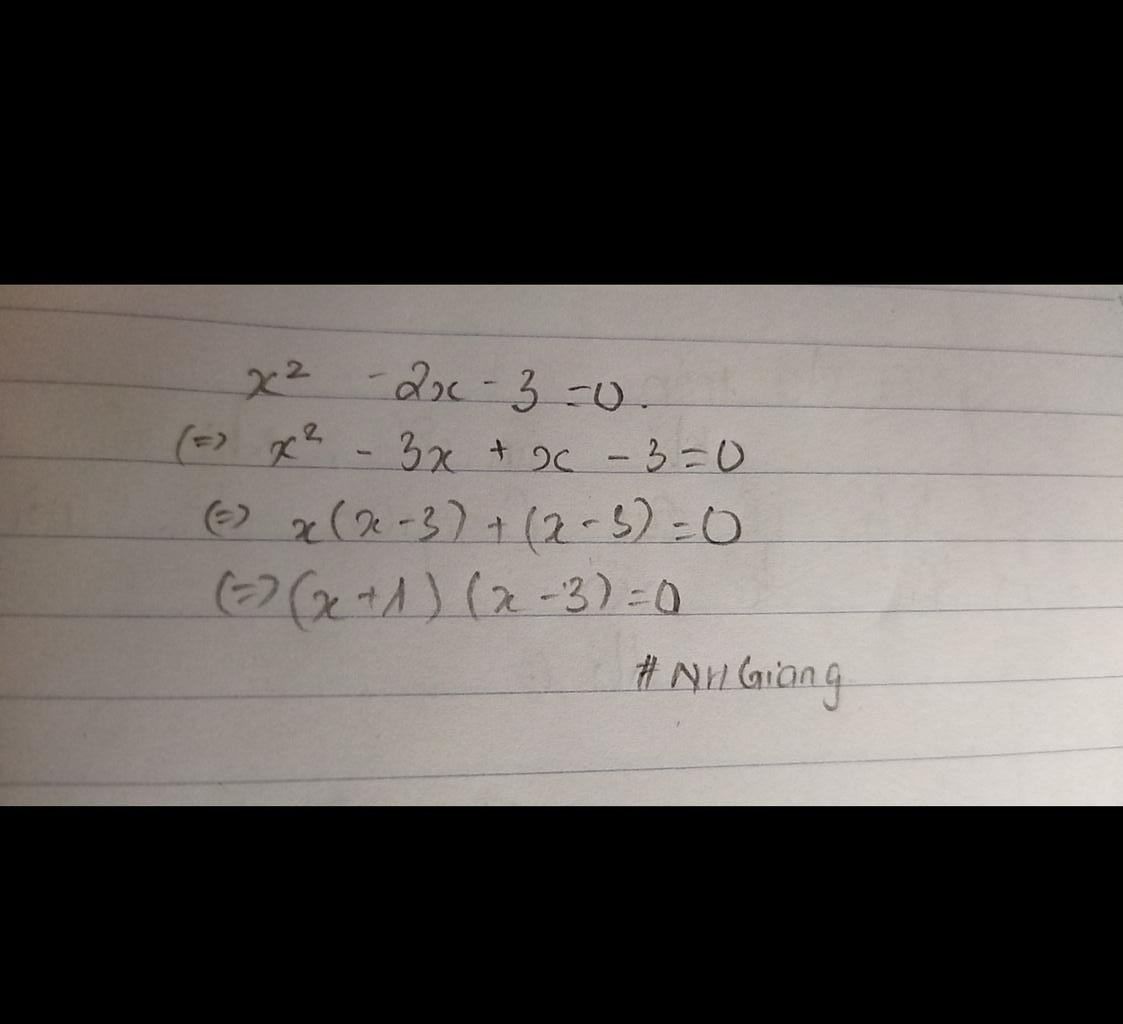 x² - 2x - 3 = 0.
(=) x² - 3x + x - 3 = 0
(=) x(x - 3) + (x - 3) = 0
(=) (x + 1) (x - 3) = 0
# NH Giang